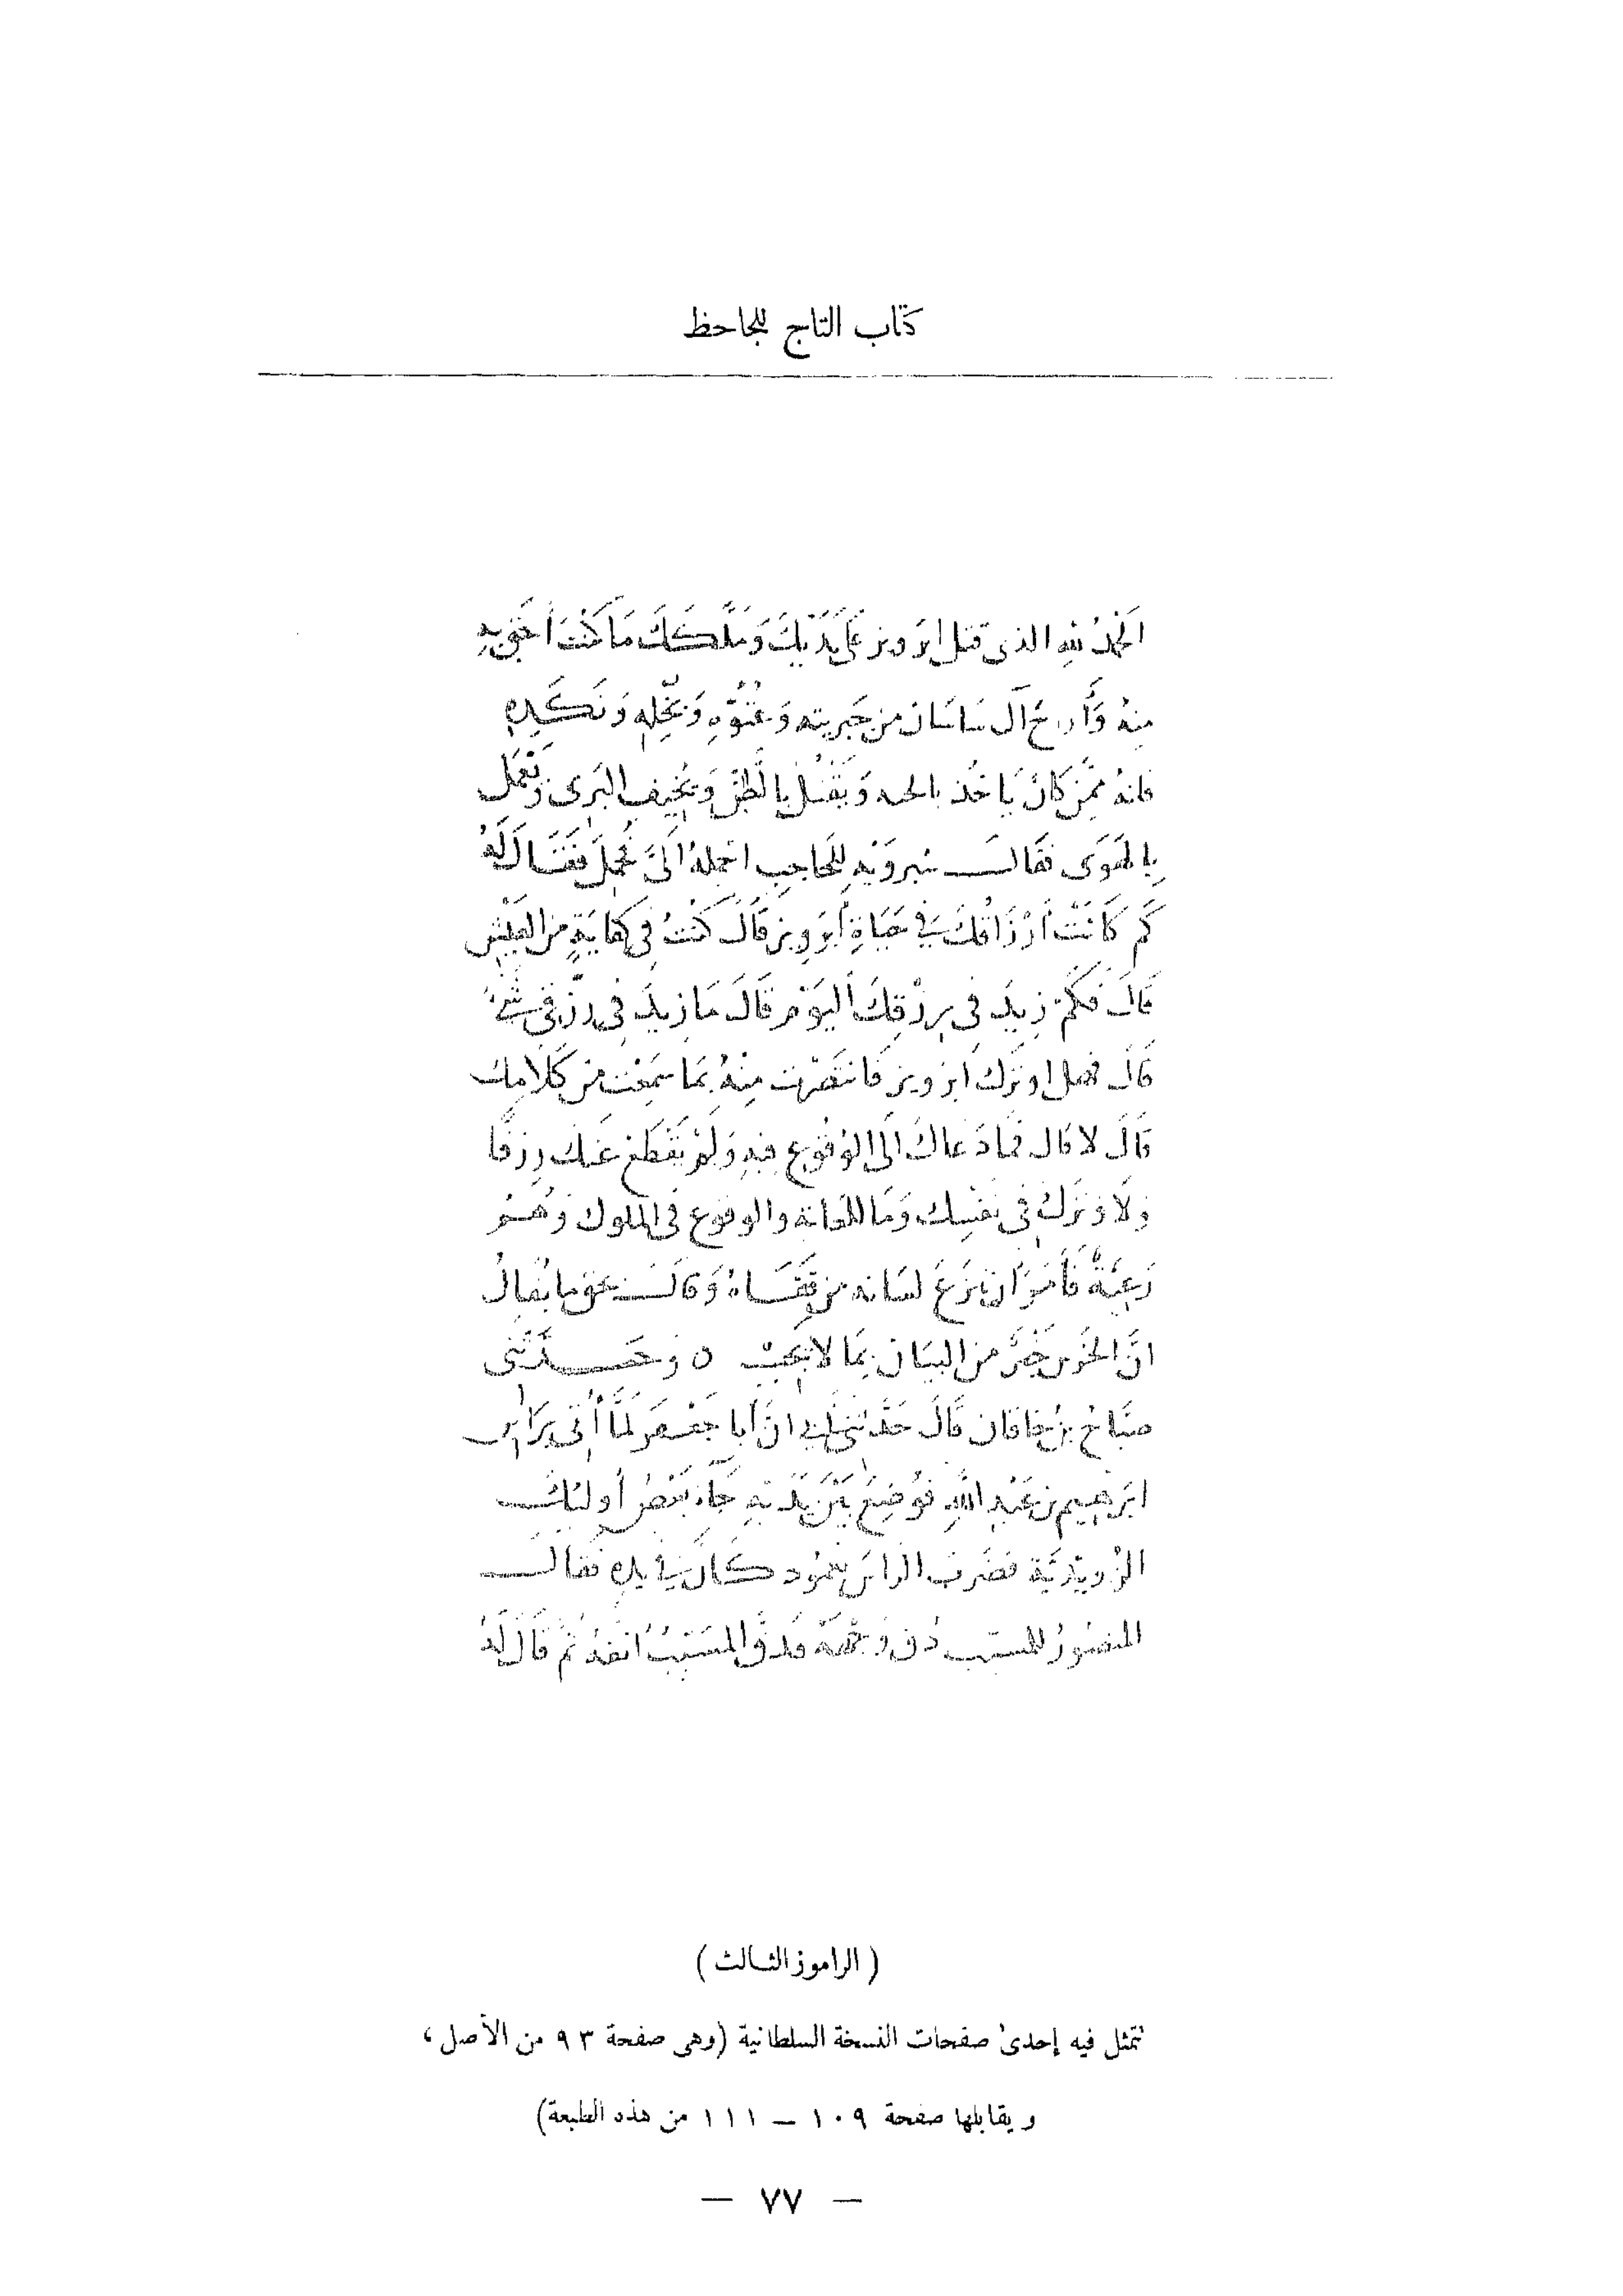 كتاب التاج للجاحظ
الحَمدُ لله الذى قتل ابرَويز عَلى يَدَيْكَ وَمَلَّكَكَ مَا كُنْتَ أحَقّ بِهِ
مِنهُ وَأراحَ آلَ سَاسَان من جَبريته وَعُتُوِّهِ وَبُخْلِهِ وَنَكَدِهِ
فانهُ مِمَّن كَانَ يَاخُذ بالحبه وَيَقْتُل بِالظَّنِّ وَيُخِيف البَرِى وَيَعْمَل
بِالهَوَى فقَالَ شيروَيْهِ لِلحَاجِبِ احمِلهُ الَىَّ فَحُمِلَ فقَالَ لَهُ
كَم كَانَتْ أرْزَاقُكَ فِى حَيَاةِ أبرَويز قَالَ كُنْتُ فِى كِفَايَةٍ من العَيْشِ
قَالَ فَكَمْ زِيدَ فِى رِزْقِكَ اليَوْمَ قَالَ مَا زِيدَ فِى رِزْقِى شَىْءٌ
قَالَ فهل وتركَ ابرويز فَانتَصَرْتَ مِنْهُ بمَا سَمِعْت مِن كَلَامِكَ
قَالَ لا قال فمَا دَعَاكَ الَى الوُقُوعِ فِيهِ وَلَمْ يَقْطَعْ عَنكَ رِزقًا
وَلَا وَتَركَ فِى نَفْسِكَ وَمَا للعَامَّه والوقوع فى الملوك وَهُمْ
رَعِيَّةٌ فَأمَرَ أن يُنزَعَ لسَانه من قَفَاهُ وَقالَ بحَق مَا يُقالُ
انَّ الخَرَس خَيْرٌ من البيَان بِمَا لا يَجِبْ ه وحَدَّثَنِى
صَبَّاحُ بنُ خَاقان قَالَ حَدَّثنى أبى انَّ أبا جَعْفر لمَّا أُتى برَاس
ابرَهيم بن عَبْدِ اللهِ فوُضِعَ بَيْنَ يَدَيْهِ جَآءَ بَعْضُ أُولئِكَ
الرَّوِيَنْدِيَّة فضَرَبَ الراسَ بِعَمُود كَانَ فِى يَدِهِ فقَالَ
المنصُورُ للمسَيَّب دُق وَجْهَهُ فدَقَّ المُسَيَّبُ أنفَهُ ثُمَّ قَالَ لَهُ
( الراموز الثالث )
تتمثل فيه إحدى صفحات النسخة السلطانية (وهى صفحة ٩٣ من الأصل ،
ويقابلها صفحة ١٠٩ — ١١١ من هذه الطبعة)
— ٧٧ —